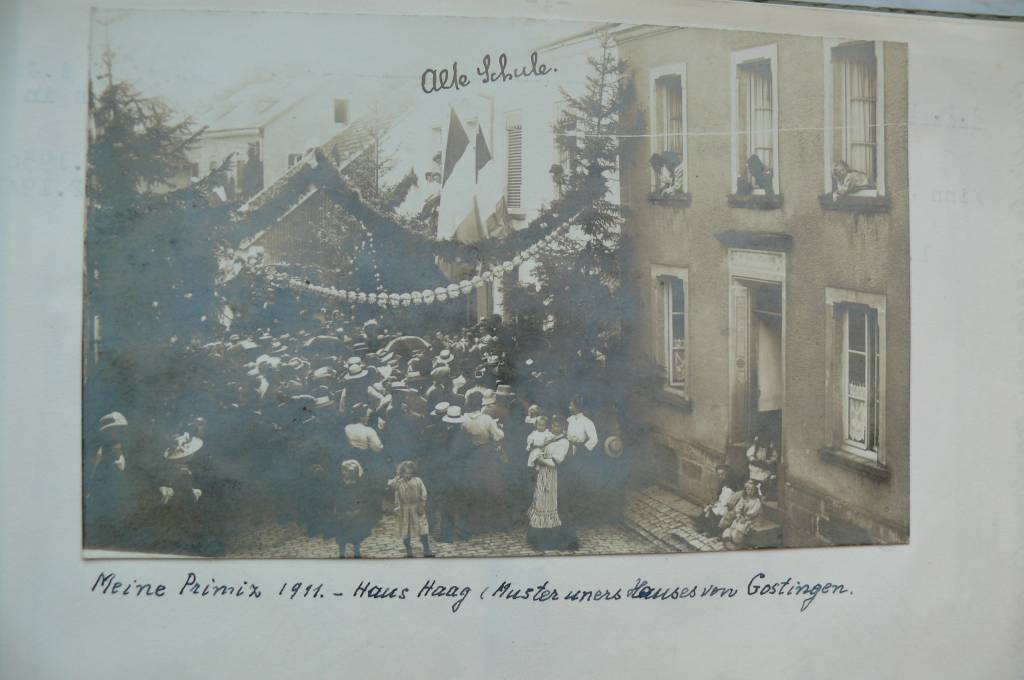 Alte Schule.
Meine Primiz 1911. - Haus Haag (Muster uners Hauses von Gostingen.